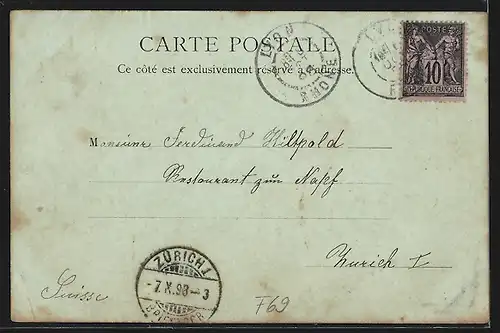 CARTE POSTALE
Ce côté est exclusivement réservé à l'adresse.
LYON
RHONE
POSTE
10
REPUBLIQUE FRANÇAISE
Monsieur Ferdinand Hiltpold
Restaurant zum Napf
Zurich I
Suisse
ZÜRICH 1
-7.X.98-3
BRIEFTRÄGER
F69